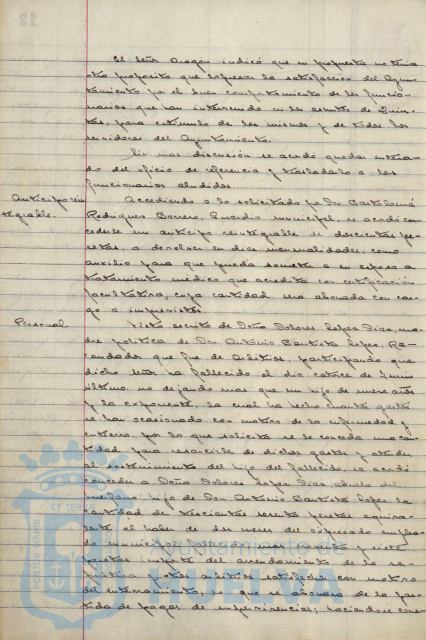 El Señor Aragón indicó que su propuesta no tenía
otro propósito que expresar la satisfacción del Ayun-
tamiento por el buen comportamiento de los funcio-
narios que han intervenido en los asuntos de Quin-
tas, para estímulo de los mismos y de todos los
servidores del Ayuntamiento.
Sin mas discusión se acordó quedar entera-
do del oficio de referencia y trasladarlo a los
funcionarios aludidos.
Anticipo rein-
tegrable.
Accediendo a lo solicitado por Don Bartolomé
Rodríguez Borrero, Guardia municipal, se acordó con-
cederle un anticipo reintegrable de doscientas pe-
setas, a devolver en diez mensualidades, como
auxilio para que pueda someter a su esposa a
tratamiento médico que acredita con certificación
facultativa, cuya cantidad será abonada con car-
go a imprevistos.
Personal.
Visto escrito de Doña Dolores López Díaz, ma-
dre política de Don Antonio Bautista López, Re-
caudador que fue de Arbitrios, participando que
dicho señor ha fallecido el día catorce de Junio
último, no dejando mas que un hijo de nueve años
y la exponente, la cual ha hecho cuantos gastos
se han ocasionado con motivo de la enfermedad y
entierro, por lo que solicita se le conceda una can-
tidad para resarcirse de dichos gastos y atender
al sostenimiento del hijo del fallecido, se acordó
conceder a Doña Dolores López Díaz, abuela del
huérfano hijo de Don Antonio Bautista López, la
cantidad de trescientas sesenta pesetas equiva-
lente al haber de dos meses del expresado emplea-
do municipal fallecido, mas sesenta y siete
pesetas importe del arrendamiento de la se-
pultura y otros arbitrios satisfechos con motivo
del enterramiento, lo que se abonará de la par-
tida de pagas de supervivencias, haciéndose cons-
Ayuntamiento de
HUELVA
PORTUS MARIS ET TERRAE